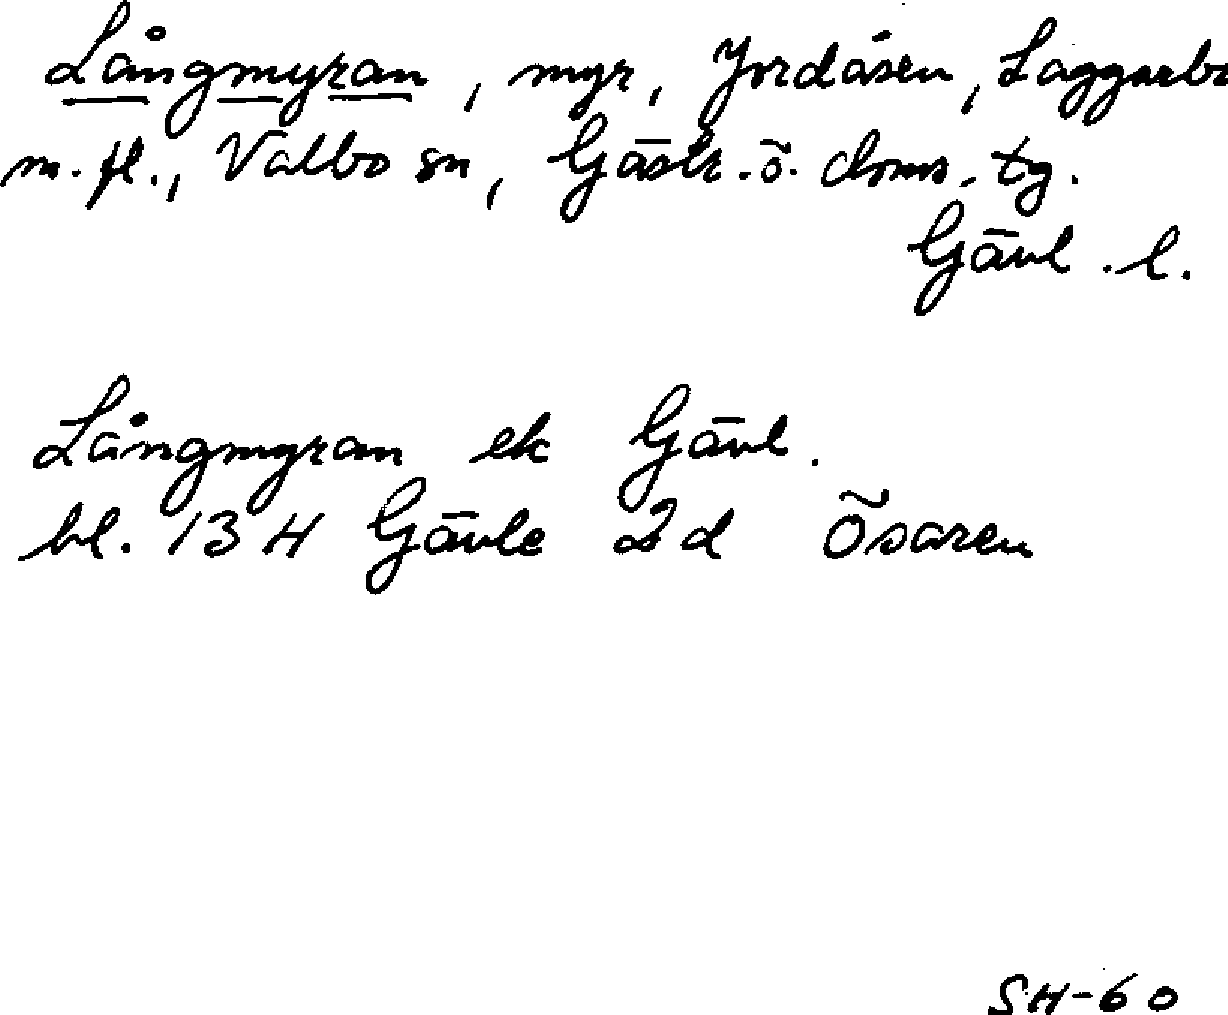 Långmyran, myr, Jordåsen, Laggarbo
m. fl., Valbo sn, Gästr. ö. doms. tg.
Gävl. l.
Långmyran ek Gävl.
bl. 13 H Gävle 2 d Ösaren
SH-60